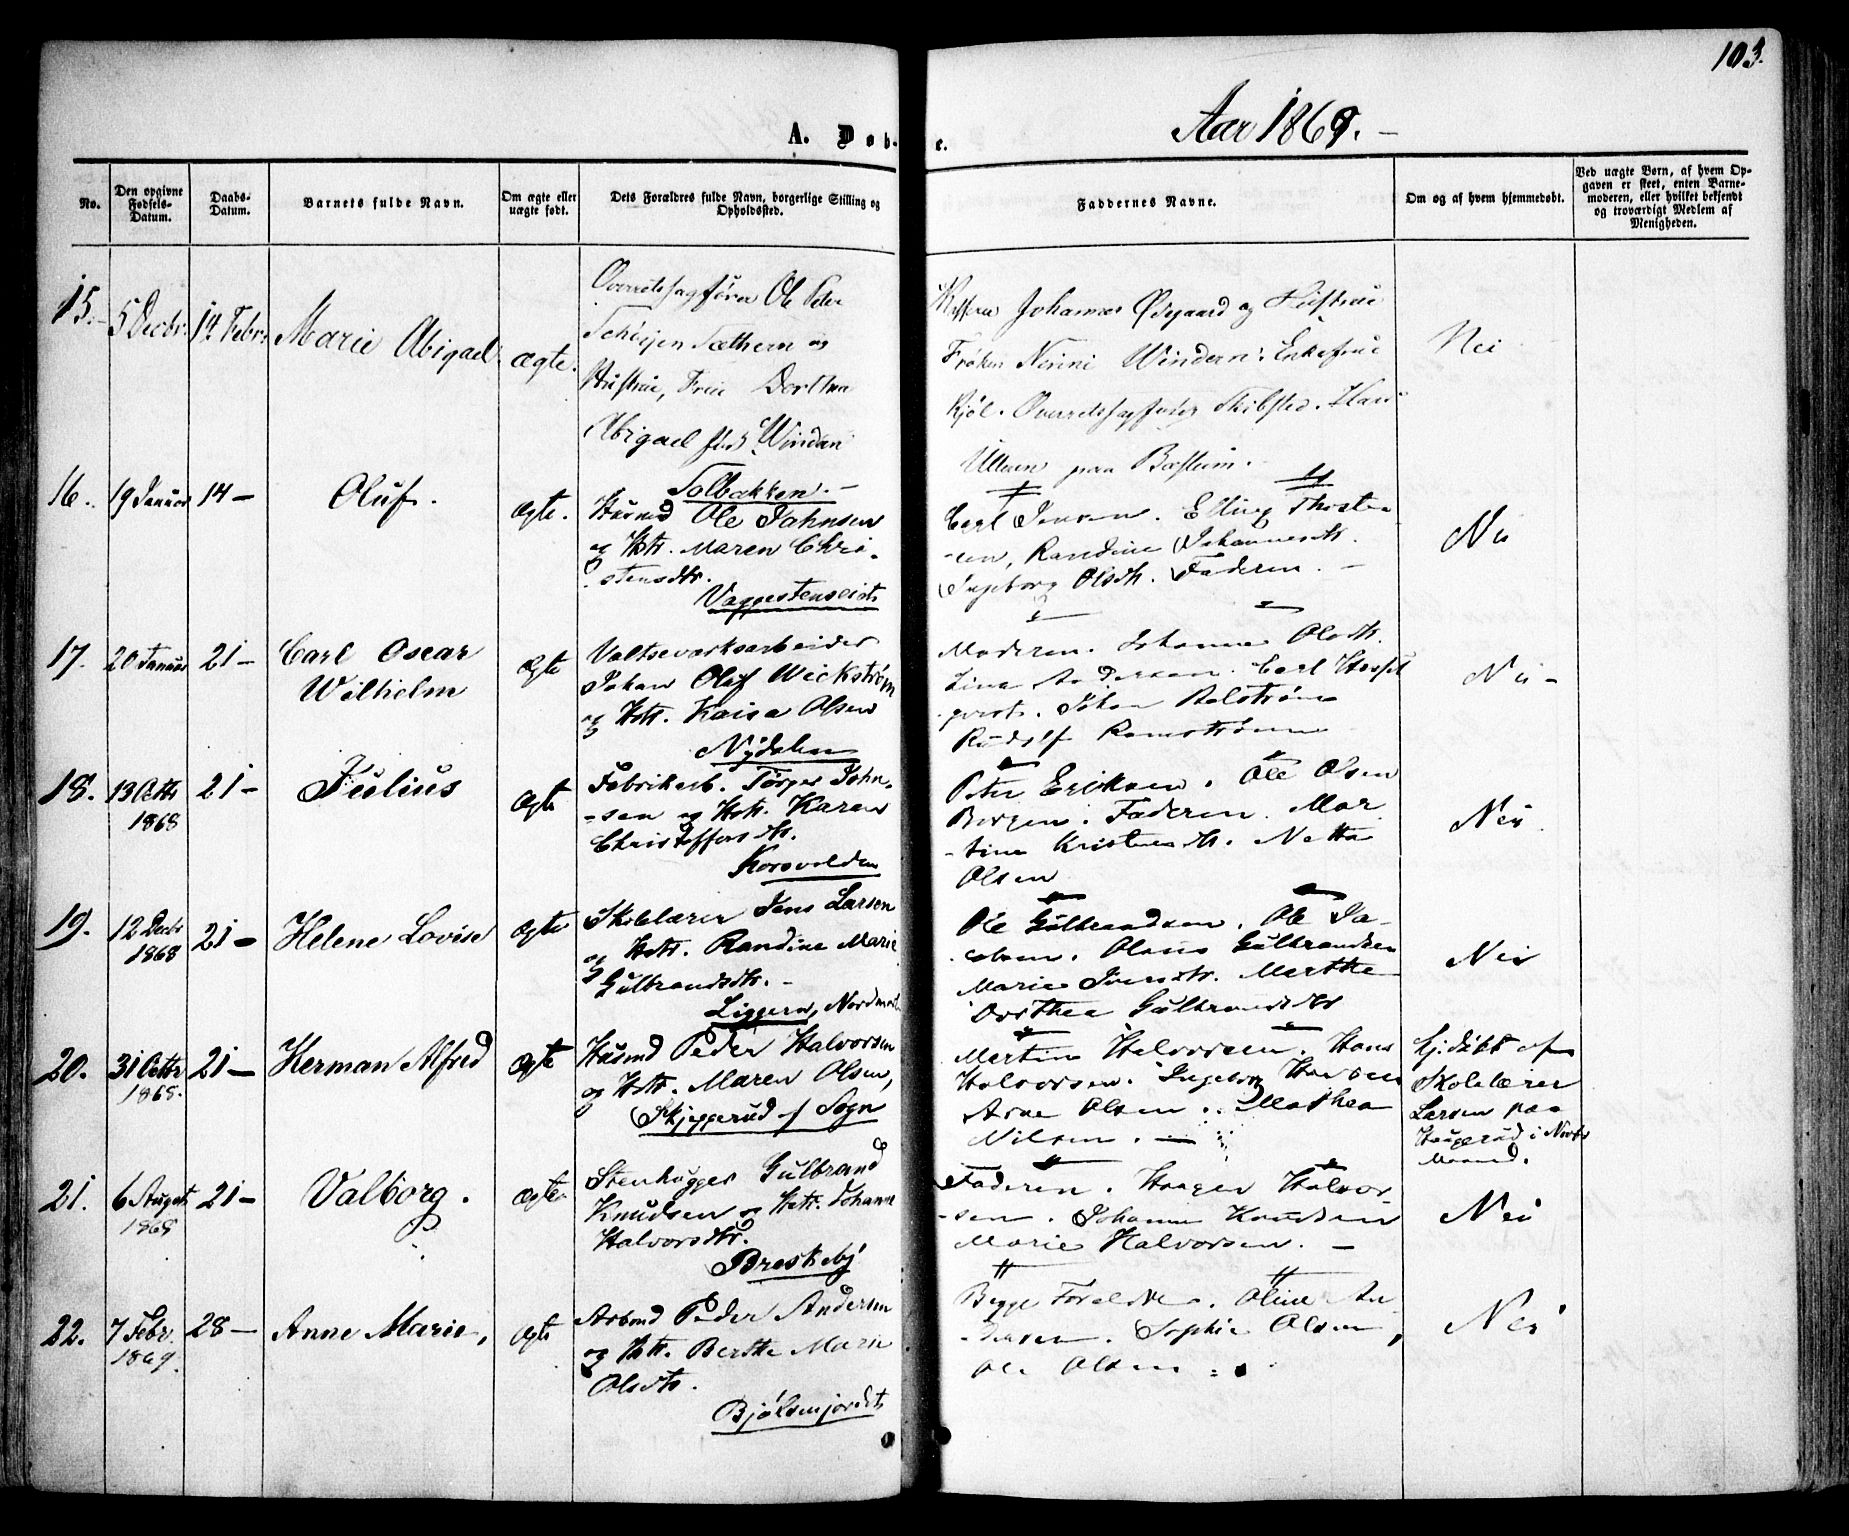 103.
A. Døb-
e.
Aar 1869. —
No.
Den opgivne Fødsels-Datum.
Daabs-Datum.
Barnets fulde Navn.
Om ægte eller uægte født.
Dets Forældres fulde Navn, borgerlige Stilling og Opholdssted.
Faddernes Navne.
Om og af hvem hjemmedøbt.
Ved uægte Børn, af hvem Opgaven er skeet, enten Barnemoderen, eller hvilket bekjendt og troværdigt Medlem af Menigheden.
15. 5 Decbr. 14 Febr. Marie Abigael ægte.
Overretssagfører Ole Peder
Schøijen Sæthern og
Hustrue, Frue Dorthea
Abigael født Winderen
Solbakken. —
Johannes Ødegaard og Hustrue
Frøken Nenini Winderen. Enkefrue
Kjøl. Overretssagfører Skibsted. Hans
Ullern paa Bæstum.
Nei
16. 19 Januar 14 — Oluf. ægte.
Husmd Ole Jahnsen
og Hstr. Maren Chri-
stensdtr.
Vaggestenseiet
Carl Jensen. Elling Thoste-
sen, Randine Johannesdtr.
Ingeborg Olsdtr. Faderen. —
Nei
17. 20 Januar 21 — Carl Oscar
Wilhelm ægte
Valtseværksarbeider
Johan Olof Wickstrøm
og Hstr. Kaisa Olsen
Nydalen
Moderen. Johanne Olsdtr.
Lina Andersen. Carl
qvist. Johan Aalstrøm
Rudolf Ramstrøm
Nei —
18. 13 Octbr 1868 21 — Julius ægte
Fabrikarb. Torger John-
sen og Hstr. Karen
Christoffersdtr.
Korsvolden
Peter Eriksen. Ole Olsen
Bergen. Faderen. Mar-
tine Kristensdtr. Netta
Olsen
Nei
19. 12 Decbr 1868 21 — Helene Lovise ægte
Skolelærer Jens Larsen
og Hstr. Randine Marie
Gulbrandsdtr. —
Liggern, Nordmark
Ole Gulbrandsen. Ole Ja-
cobsen. Olaus Gulbrandsen
Marie Iversdtr. Marthe
Dorthea Gulbrandsdtr
Nei
20. 31 Octbr 1868. 21 — Herman Alfred ægte
Husmd Peder Halvorsen
og Hstr. Maren Olsen,
Skjeggerud i Sogn
Martin Halvorsen. Hans
Halvorsen. Ingeborg Halvorsen
Arne Olsen. Mathea
Nilsen. —
Hj. døbt af
Skolelærer
Larsen paa
Haugerud i Nord-
Maarud.
21. 6 August 1868 21 — Valborg. ægte
Stenhugger Gulbrand
Knudsen og Hstr. Johanne
Halvorsdtr.
Breskeby
Faderen. Haagen Halvor-
sen. Johanne Knudsen
Marie Halvorsen. —
Nei
22. 7 Febr. 1869. 28 — Anne Marie, ægte
Arbmd Peder Andersen
og Hstr. Berthe Marie
Olsdtr.
Bjølsenjordet
Begge Forældre. Oline An-
dersen. Sophie Olsen,
Ole Olsen
Nei